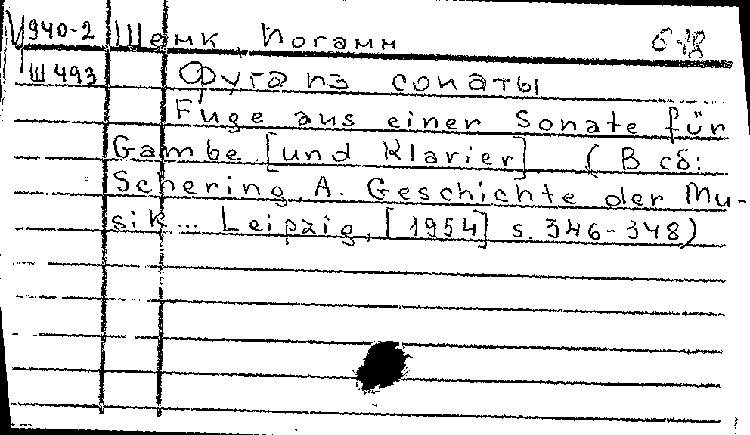 У940-2 Шенк Иоганн
Ш493 Фуга из сонаты
Fuge aus einer Sonate für
Gambe [und Klavier] (В сб:
Schering, A. Geschichte der Mu-
sik... Leipzig, [1954] s. 346-348)